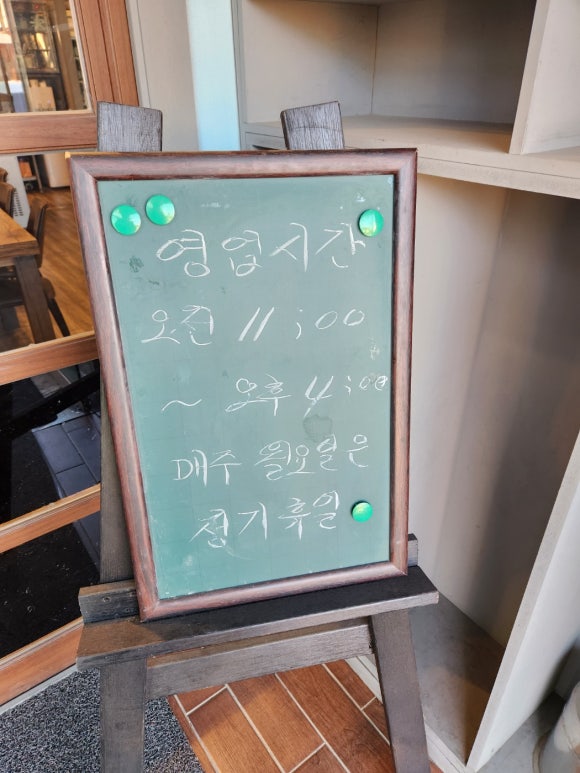 영업시간
오전 11:00
~ 오후 4:00
매주 월요일은
정기휴일